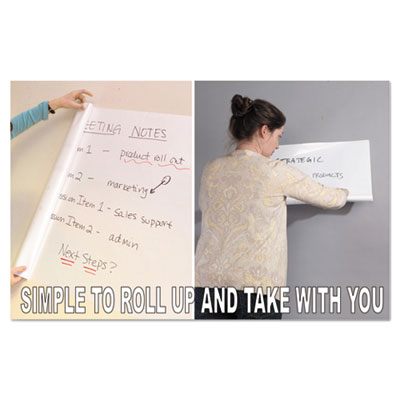 EETING NOTES
m 1 - product roll out
m 2 - marketing
ssion Item 1 - Sales support
ssion Item 2 - admin
Next Steps?
STRATEGIC
PRODUCTS
SIMPLE TO ROLL UP AND TAKE WITH YOU